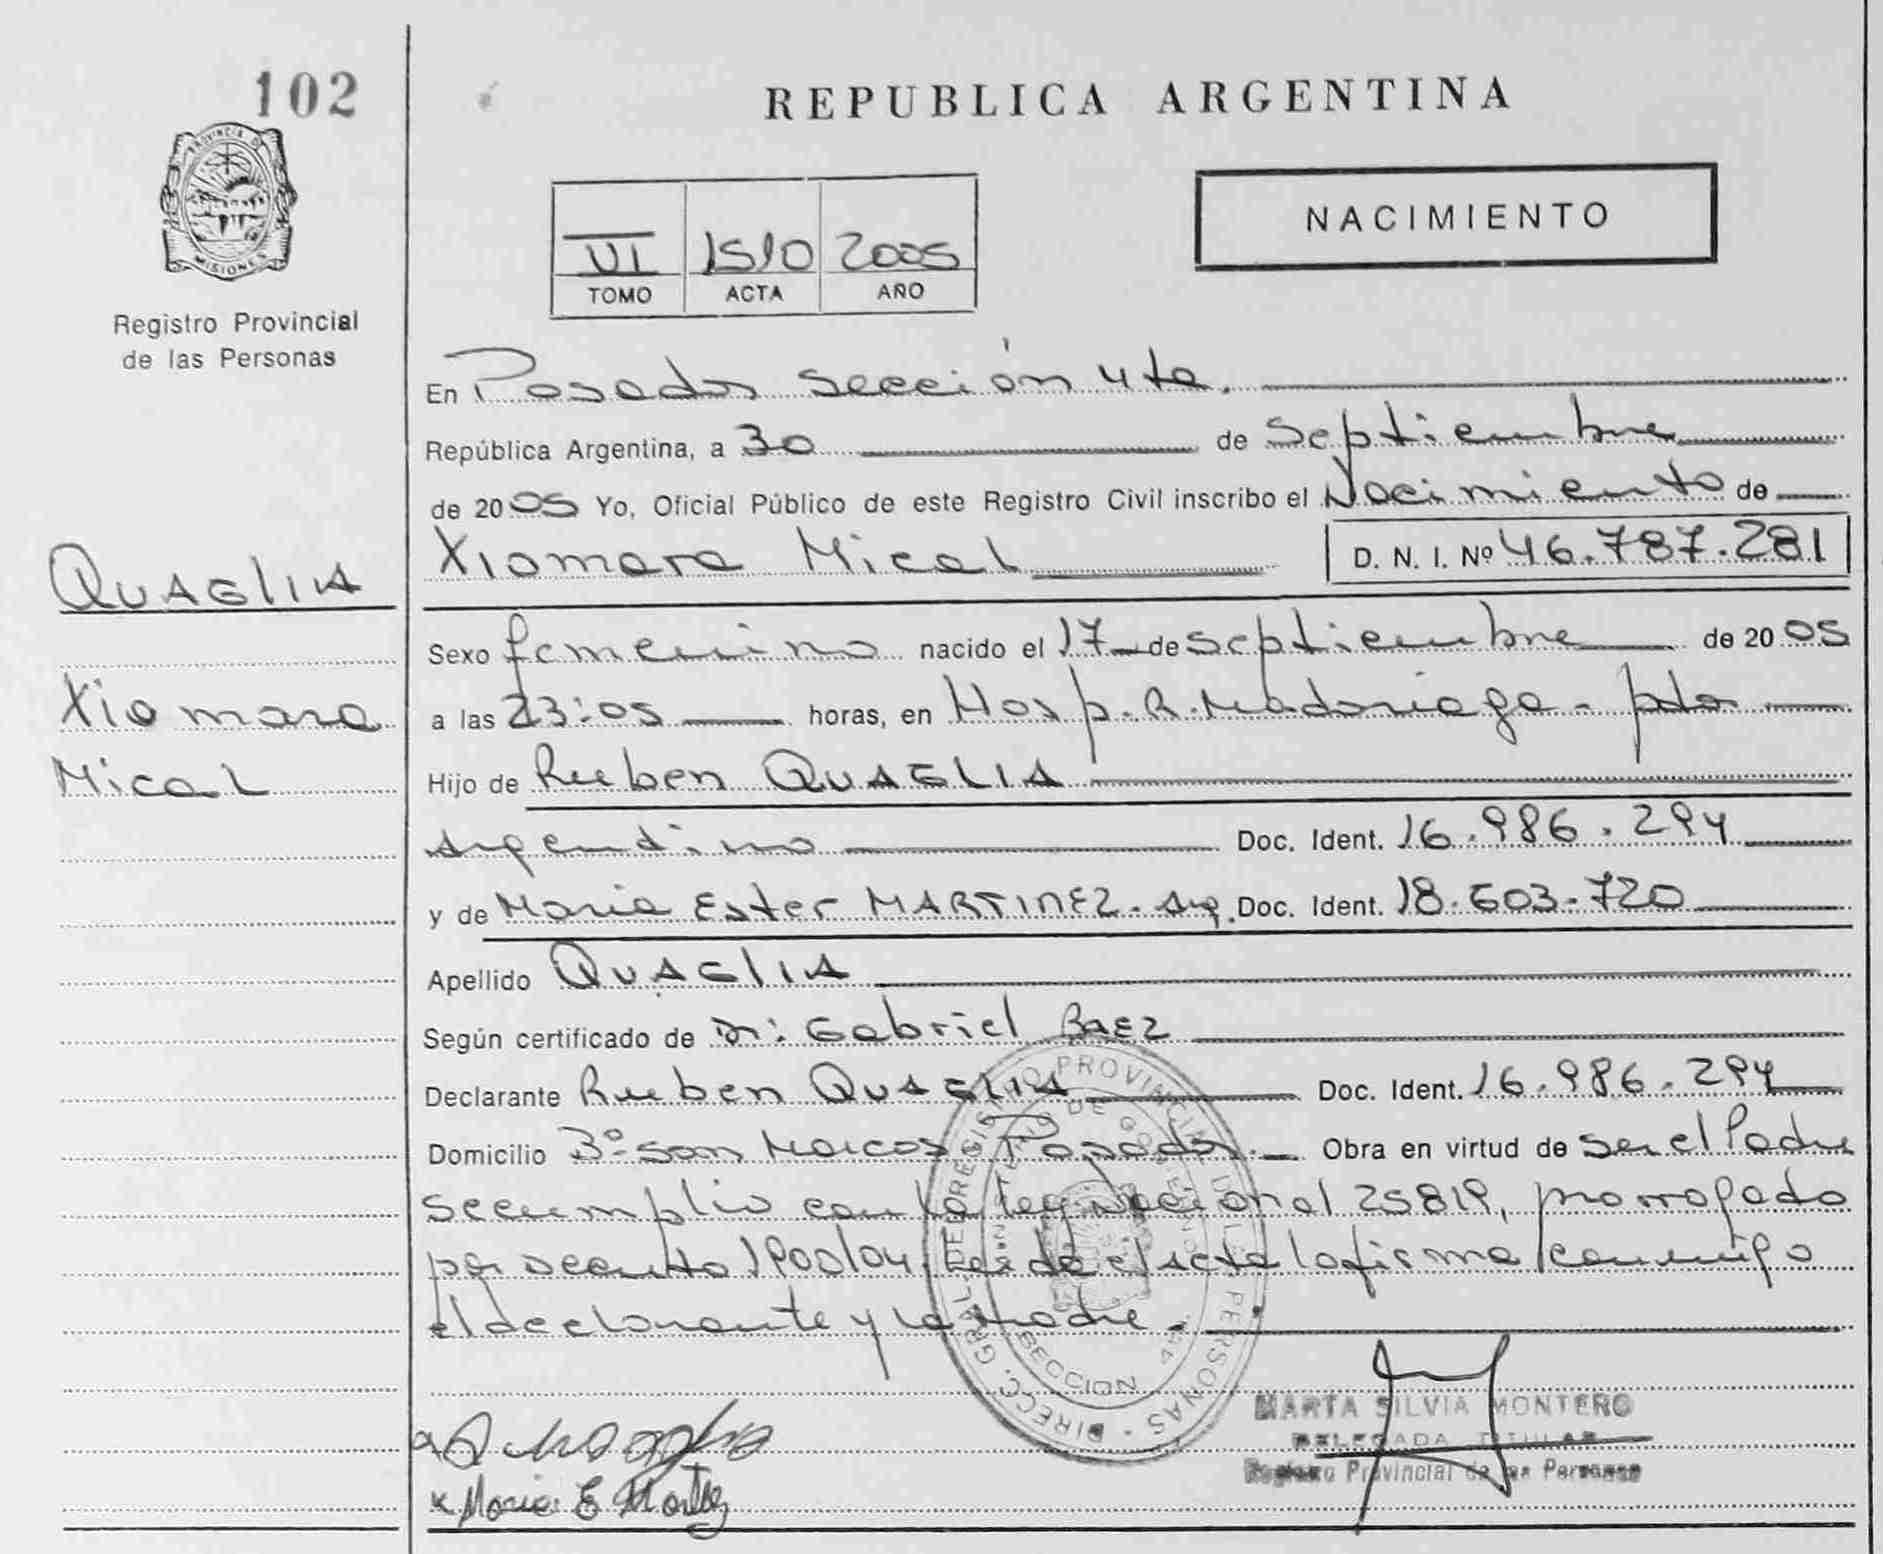 102
REPUBLICA ARGENTINA
PROVINCIA DE
MISIONES
Registro Provincial
de las Personas
NACIMIENTO
VI 1510 2005
TOMO ACTA AÑO
En Posadas sección 4ta.
República Argentina, a 30 de Septiembre
de 2005 Yo, Oficial Público de este Registro Civil inscribo el Nacimiento de
QUAGLIA
Xiomara Mical D. N. I. Nº 46.787.281
Sexo femenino nacido el 17 de septiembre de 2005
Xiomara
a las 23:05 horas, en Hosp. R. Madariaga - pdas
Mical
Hijo de Ruben QUAGLIA
argentino Doc. Ident. 16.986.294
y de Maria Ester MARTINEZ - arg. Doc. Ident. 18.603.720
Apellido QUAGLIA
Según certificado de Dr: Gabriel BAEZ
Declarante Ruben QUAGLIA Doc. Ident. 16.986.294
Domicilio Bº San Marcos Posadas. Obra en virtud de ser el Padre
se cumplio con la ley Nacional 25819, prorrogado
por decreto 1900/04 leida el acta la firma conmigo
el declarante y la Madre.
DIRECC. GRAL. DEL REGISTRO PROVINCIAL DE LAS PERSONAS
SECCION 4ta
MARTA SILVIA MONTERO
DELEGADA TITULAR
Registro Provincial de las Personas
Maria E Martinez